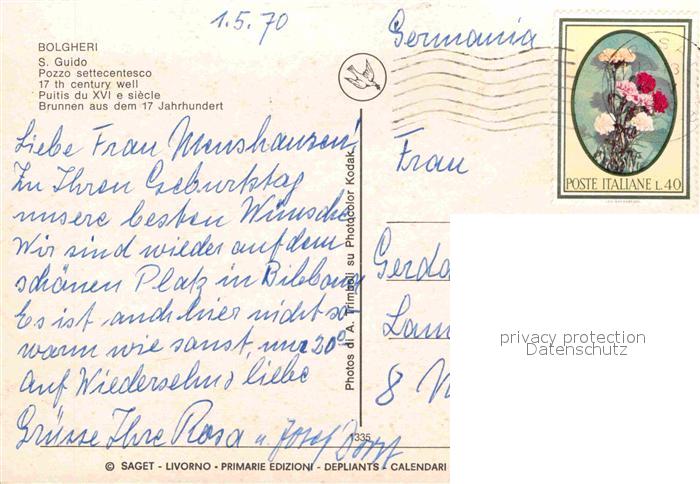 1.5.70
BOLGHERI
S. Guido
Pozzo settecentesco
17 th century well
Puitis du XVI e siècle
Brunnen aus dem 17 Jahrhundert
Liebe Frau Menshausen!
Zu Ihren Geburtstag
unsere besten Wünsche
Wir sind wieder auf dem
schönen Platz in Bibbona
Es ist auch hier nicht so
warm wie sonst, nur 20°
Auf Wiedersehn liebe
Grüsse Ihre Rosa u. Josef
Photos di A. Trimboli su Photocolor Kodak
1335
© SAGET - LIVORNO - PRIMARIE EDIZIONI - DEPLIANTS - CALENDARI
Germania
POSTE ITALIANE L.40
Frau
Gerda
8
privacy protection
Datenschutz